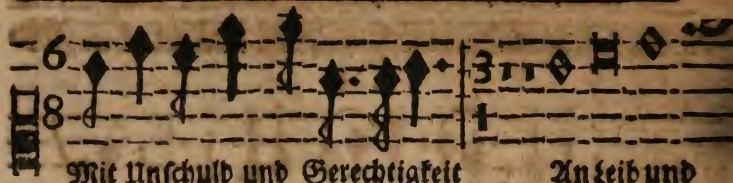 6 3
8 1
Mit Unschuld und Gerechtigkeit An Leib und